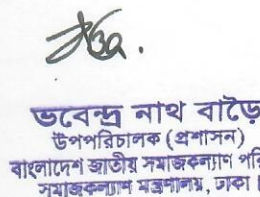 ভবেন্দ্র নাথ বাড়ৈ
উপপরিচালক (প্রশাসন)
বাংলাদেশ জাতীয় সমাজকল্যাণ পরি
সমাজকল্যাণ মন্ত্রণালয়, ঢাকা।